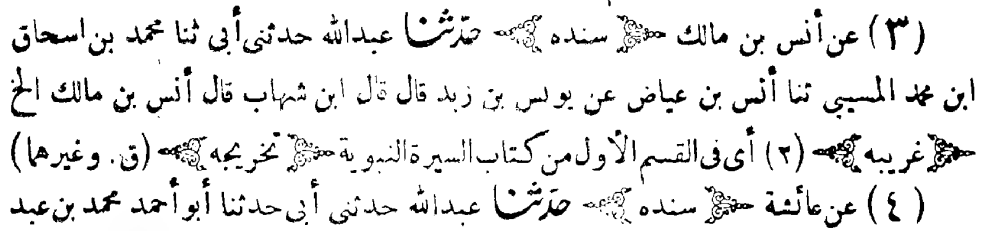 (٣) عن أنس بن مالك ﴿ سنده ﴾ حدثنا عبدالله حدثنى أبى ثنا محمد بن اسحاق
ابن محمد المسيبى ثنا أنس بن عياض عن يونس بن زيد قال قال ابن شهاب قال أنس بن مالك الخ
﴿ غريبه ﴾ (٢) أى فى القسم الأول من كتاب السيرة النبوية ﴿ تخريجه ﴾ (ق. وغيرهما)
(٤) عن عائشة ﴿ سنده ﴾ حدثنا عبدالله حدثنى أبى حدثنا أبو أحمد محمد بن عبد